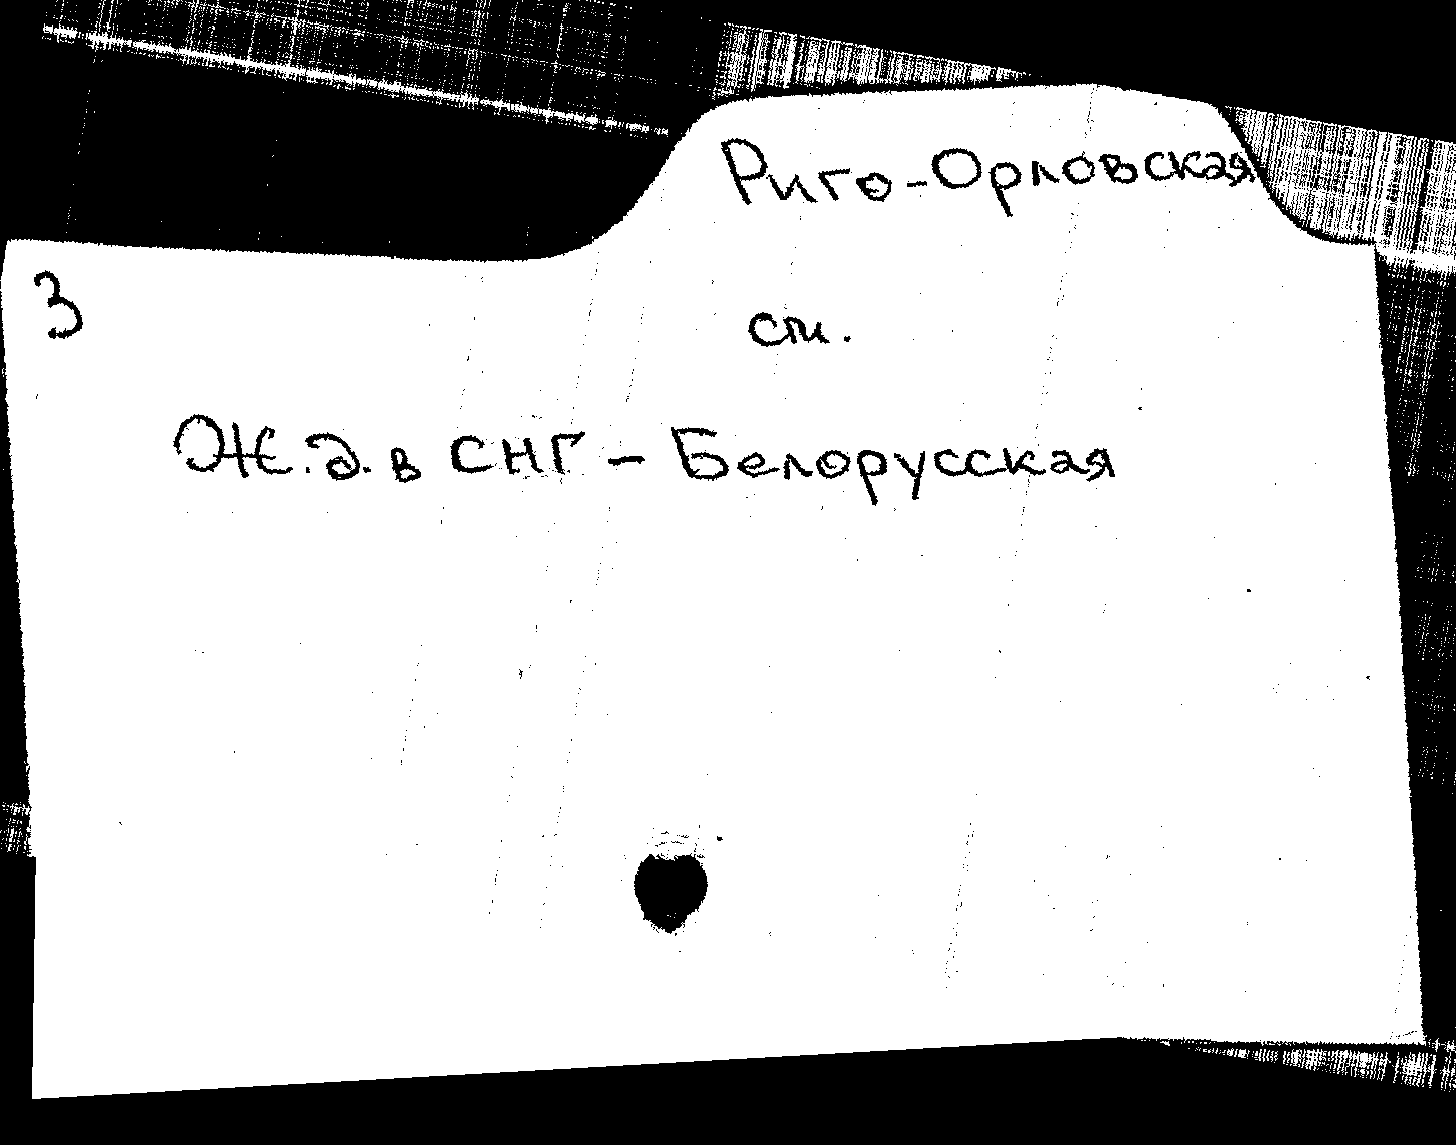 Риго-Орловская
3
см.
Ж.д. в СНГ - Белорусская